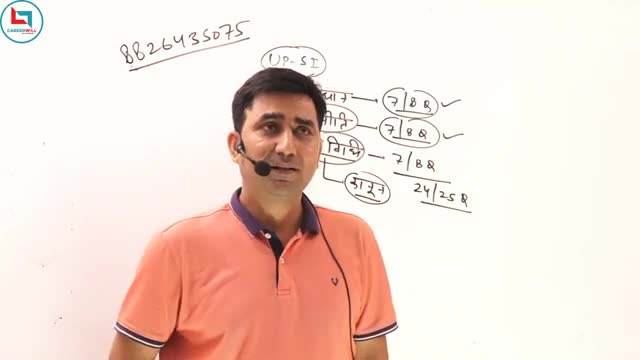 CAREERWILL
8826435075
UP-SI
7/8Q
7/8Q
विधि — 7/8Q
कानून
24/25Q